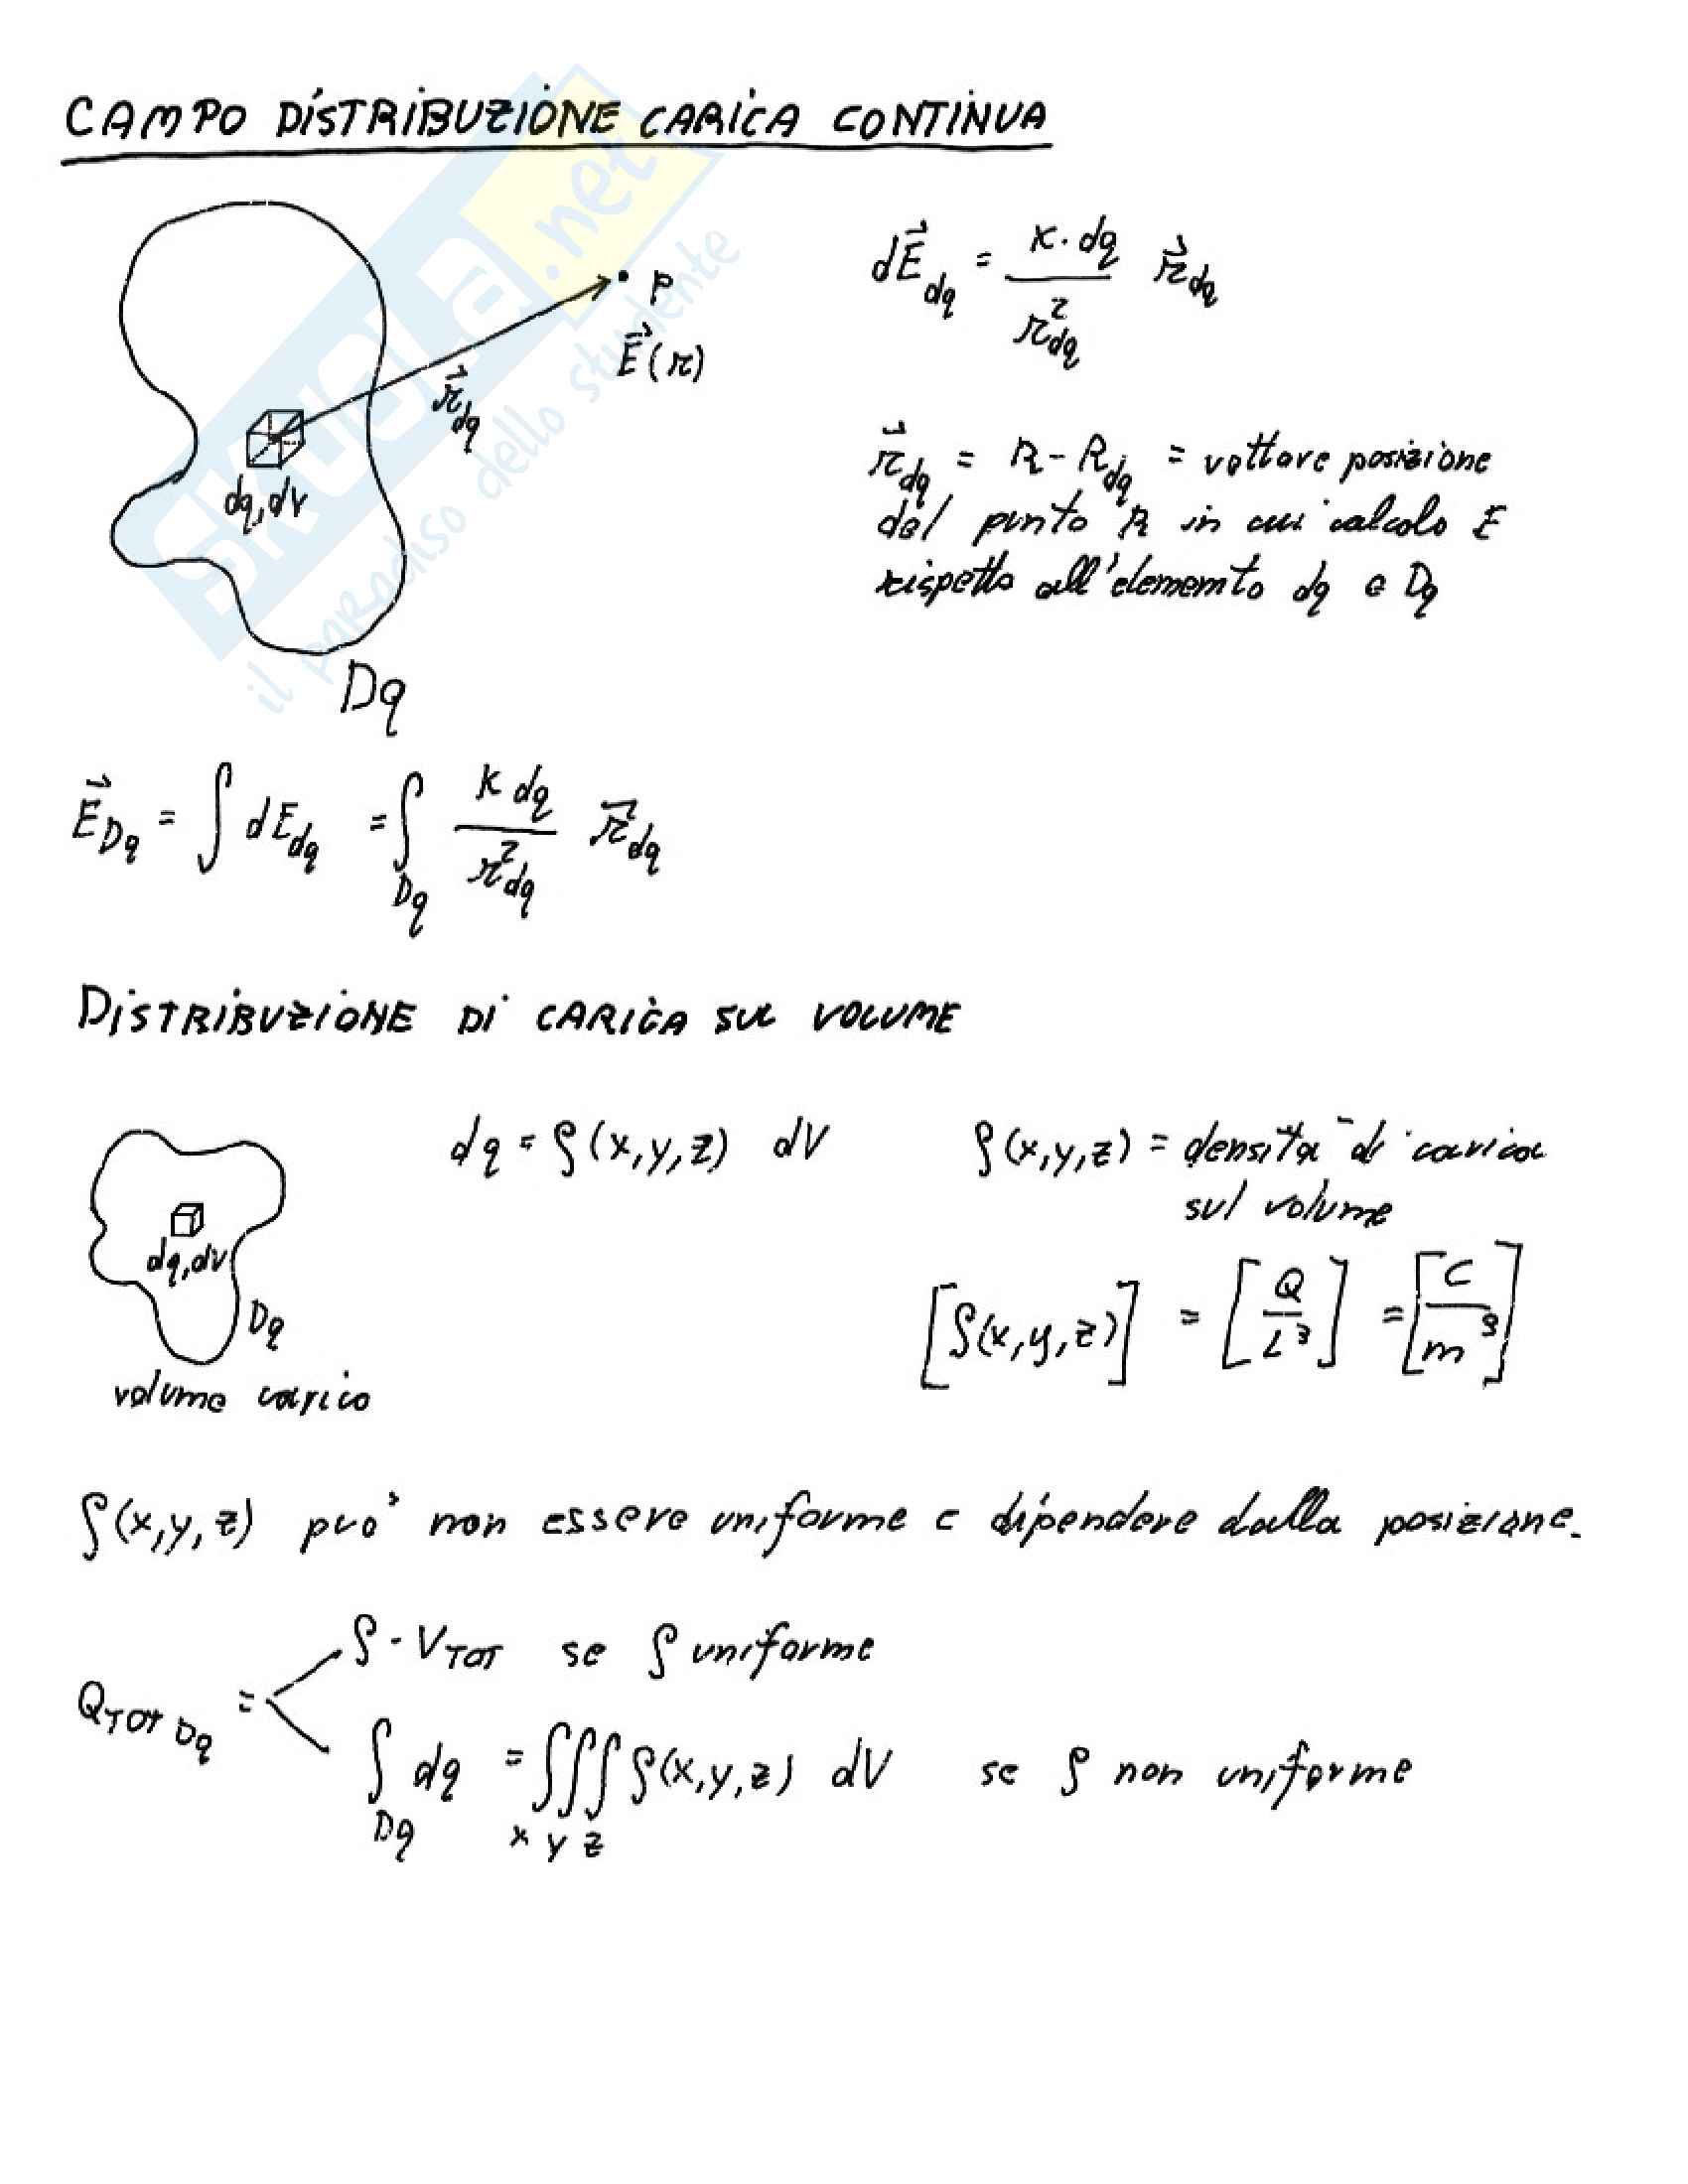 CAMPO DISTRIBUZIONE CARICA CONTINUA
SKUOLA.net
il paradiso dello studente
P
E⃗(r)
r⃗_dq
dq, dV
Dq
dE⃗_dq = K·dq / r²_dq r⃗_dq
r⃗_dq = R - R_dq = vettore posizione
del punto R in cui calcolo E
rispetto all'elememto dq e Dq
E⃗_Dq = ∫ dE_dq = ∫_Dq K dq / r²_dq r⃗_dq
DISTRIBUZIONE DI CARICA SUL VOLUME
dq = ρ(x,y,z) dV
ρ(x,y,z) = densità di carica
sul volume
dq, dV
Dq
volume carico
[ρ(x,y,z)] = [Q / L³] = [C / m³]
ρ(x,y,z) può non essere uniforme e dipendere dalla posizione.
Q_TOT Dq =
ρ · V_TOT se ρ uniforme
∫_Dq dq = ∫∫∫_x y z ρ(x,y,z) dV se ρ non uniforme